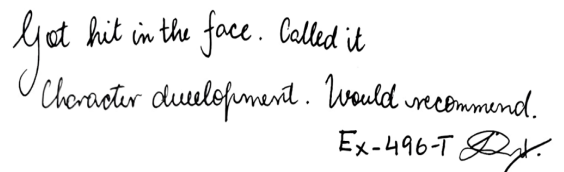 Got hit in the face. Called it
Character duvelopment. Would recommend.
Ex-496-T